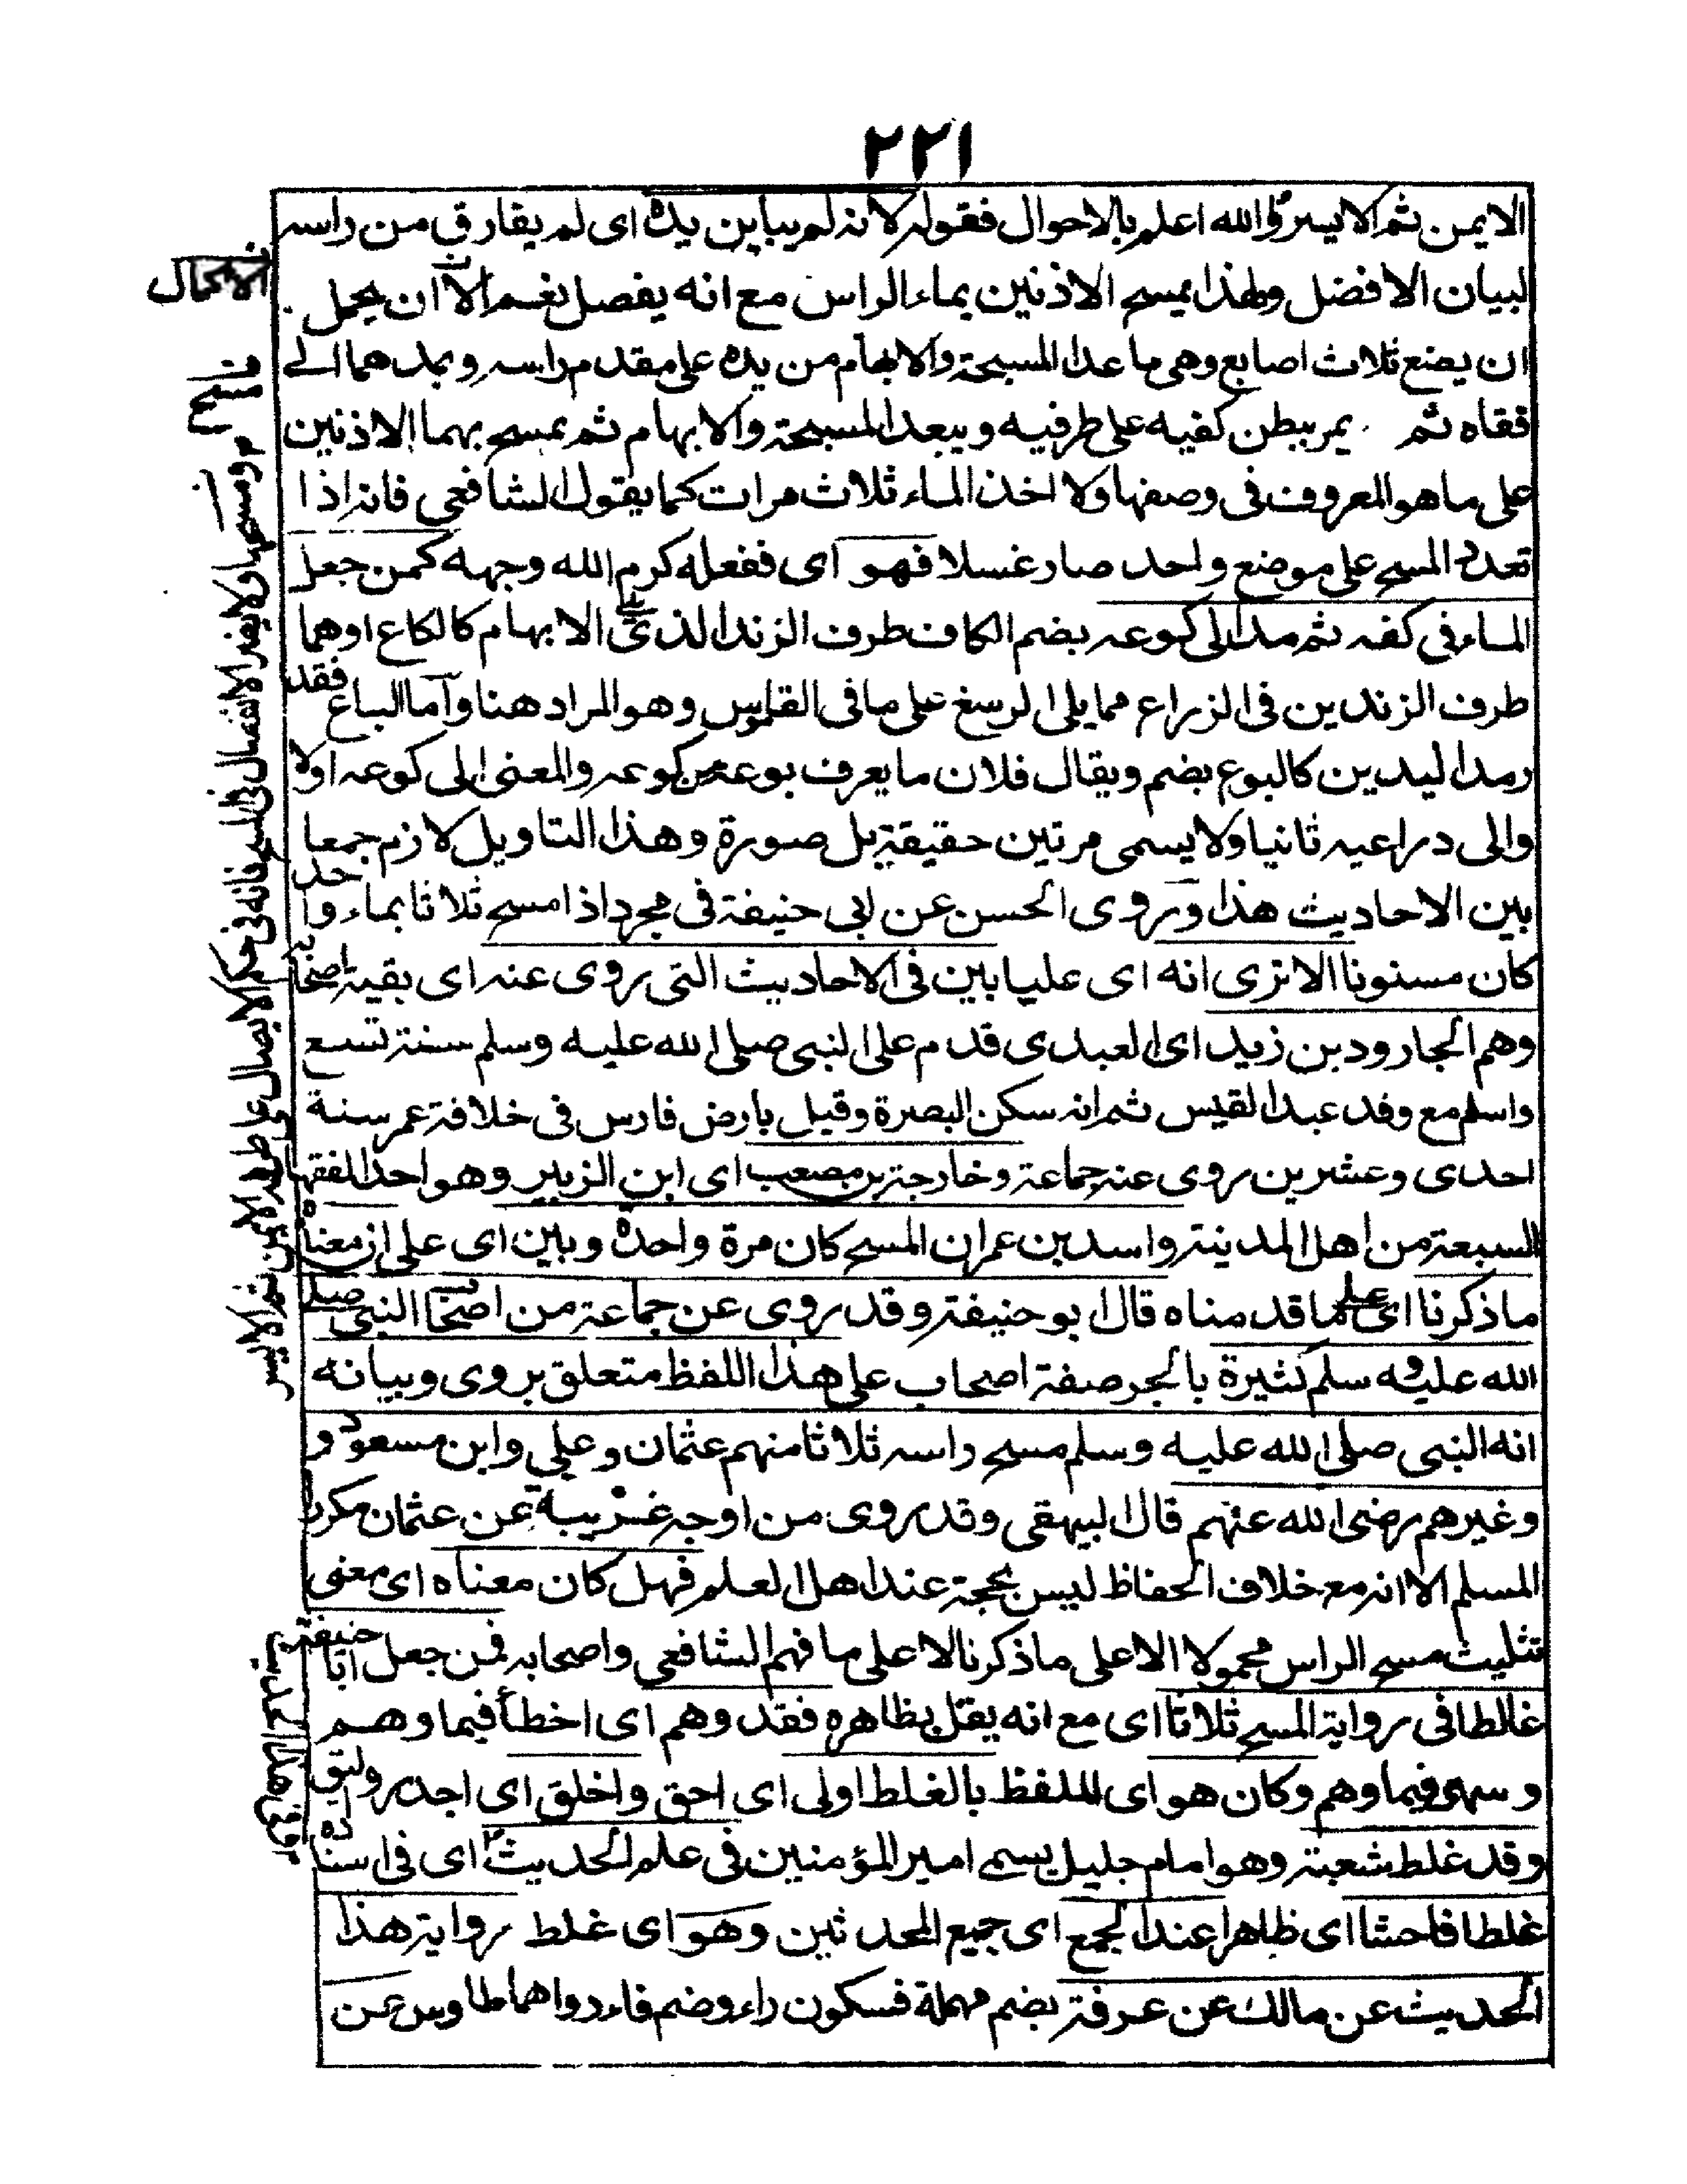 ٢٢١
الايمن ثم الايسر والله اعلم بالاحوال فقوله لانه لم يباين يده اى لم يفارق من راسه
لبيان الافضل ولهذا يمسح الاذنين بماء الراس مع انه يفصل نعم الا ان يحمل
ان يضع ثلاث اصابع وهى ما عدا المسبحة والابهام من يده على مقدم راسه ويمدهما الى
قفاه ثم يمر ببطن كفيه على طرفيه ويبعد المسبحة والابهام ثم يمسح بهما الاذنين
على ما هو المعروف فى وصفها ولا اخذ الماء ثلاث مرات كما يقول الشافعى فانه اذا
تعدد المسح على موضع واحد صار غسلا فهو اى ففعله كرم الله وجهه كمن جعل
الماء فى كفه ثم مد الى كوعه بضم الكاف طرف الزند الذى يلى الابهام كالكاع او هما
طرف الزندين فى الزراع مما يلى الرسغ على ما فى القاموس وهو المراد هنا واما الباع فقد
رمد اليدين كالبوع بضم ويقال فلان ما يعرف بوعه من كوعه والمعنى الى كوعه اولا
والى دراعيه ثانيا ولا يسمى مرتين حقيقة بل صورة وهذا التاويل لازم جمعا
بين الاحاديث هذا وروى الحسن عن ابى حنيفة فى مجرد اذا مسح ثلاثا بماء واحد
كان مسنونا الا ترى انه اى عليا بين فى الاحاديث التى روى عنه اى بقية اصحابه
وهم الجارود بن زيد اى العبدى قدم على النبى صلى الله عليه وسلم سنة تسع
واسلم مع وفد عبد القيس ثم انه سكن البصرة وقيل بارض فارس فى خلافة عمر سنة
احدى وعشرين روى عنه جماعة وخارجة بن مصعب اى ابن الزبير وهو احد الفقهاء
السبعة من اهل المدينة واسد بن عمر ان المسح كان مرة واحدة وبين اى على ان معناه
ما ذكرنا اى على ما قدمناه قال ابو حنيفة وقد روى عن جماعة من اصحاب النبى صلى
الله عليه وسلم كثيرة بالجر صفة اصحاب على هذا اللفظ متعلق بروى وبيانه
انه النبى صلى الله عليه وسلم مسح راسه ثلاثا منهم عثمان وعلى وابن مسعود و
وغيرهم رضى الله عنهم قال البيهقى وقد روى من اوجه غريبة عن عثمان مكررا
المسلم الا انه مع خلاف الحفاظ ليس بحجة عند اهل العلم فهل كان معناه اى معنى
تثليث مسح الراس محمولا الا على ما ذكرنا لا على ما فهم الشافعى واصحابه فمن جعل ابا حنيفة
غالطا فى رواية المسح ثلاثا اى مع انه يقل بظاهره فقد وهم اى اخطأ فيما وهم
و سهى فيما وهم وكان هو اى الملفظ بالغلط اولى اى احق واخلق اى اجدر وليق
وقد غلط شعبة وهو امام جليل يسمى امير المؤمنين فى علم الحديث اى فى اسناده
غلطا فاحشا اى ظاهرا عند الجمع اى جميع المحدثين وهو اى غلط رواية هذا
الحديث عن مالك عن عرفة بضم مهملة فسكون راء وضم فاء رواهما طاوس عن
الاكمال
مسح
ومسحها ولا يضر الانفصال فى اليد فانه فى حكم الاتصال على طرفه الايمن ثم الايسر